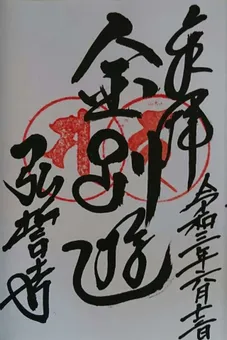 奉拝
令和三年六月十三日
金剛遊
弘誓寺